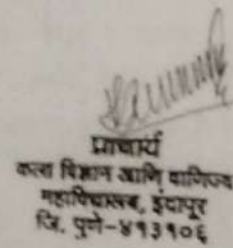 प्राचार्य
कला विज्ञान आणि वाणिज्य
महाविद्यालय, इंदापूर
जि. पुणे-४१३१०६